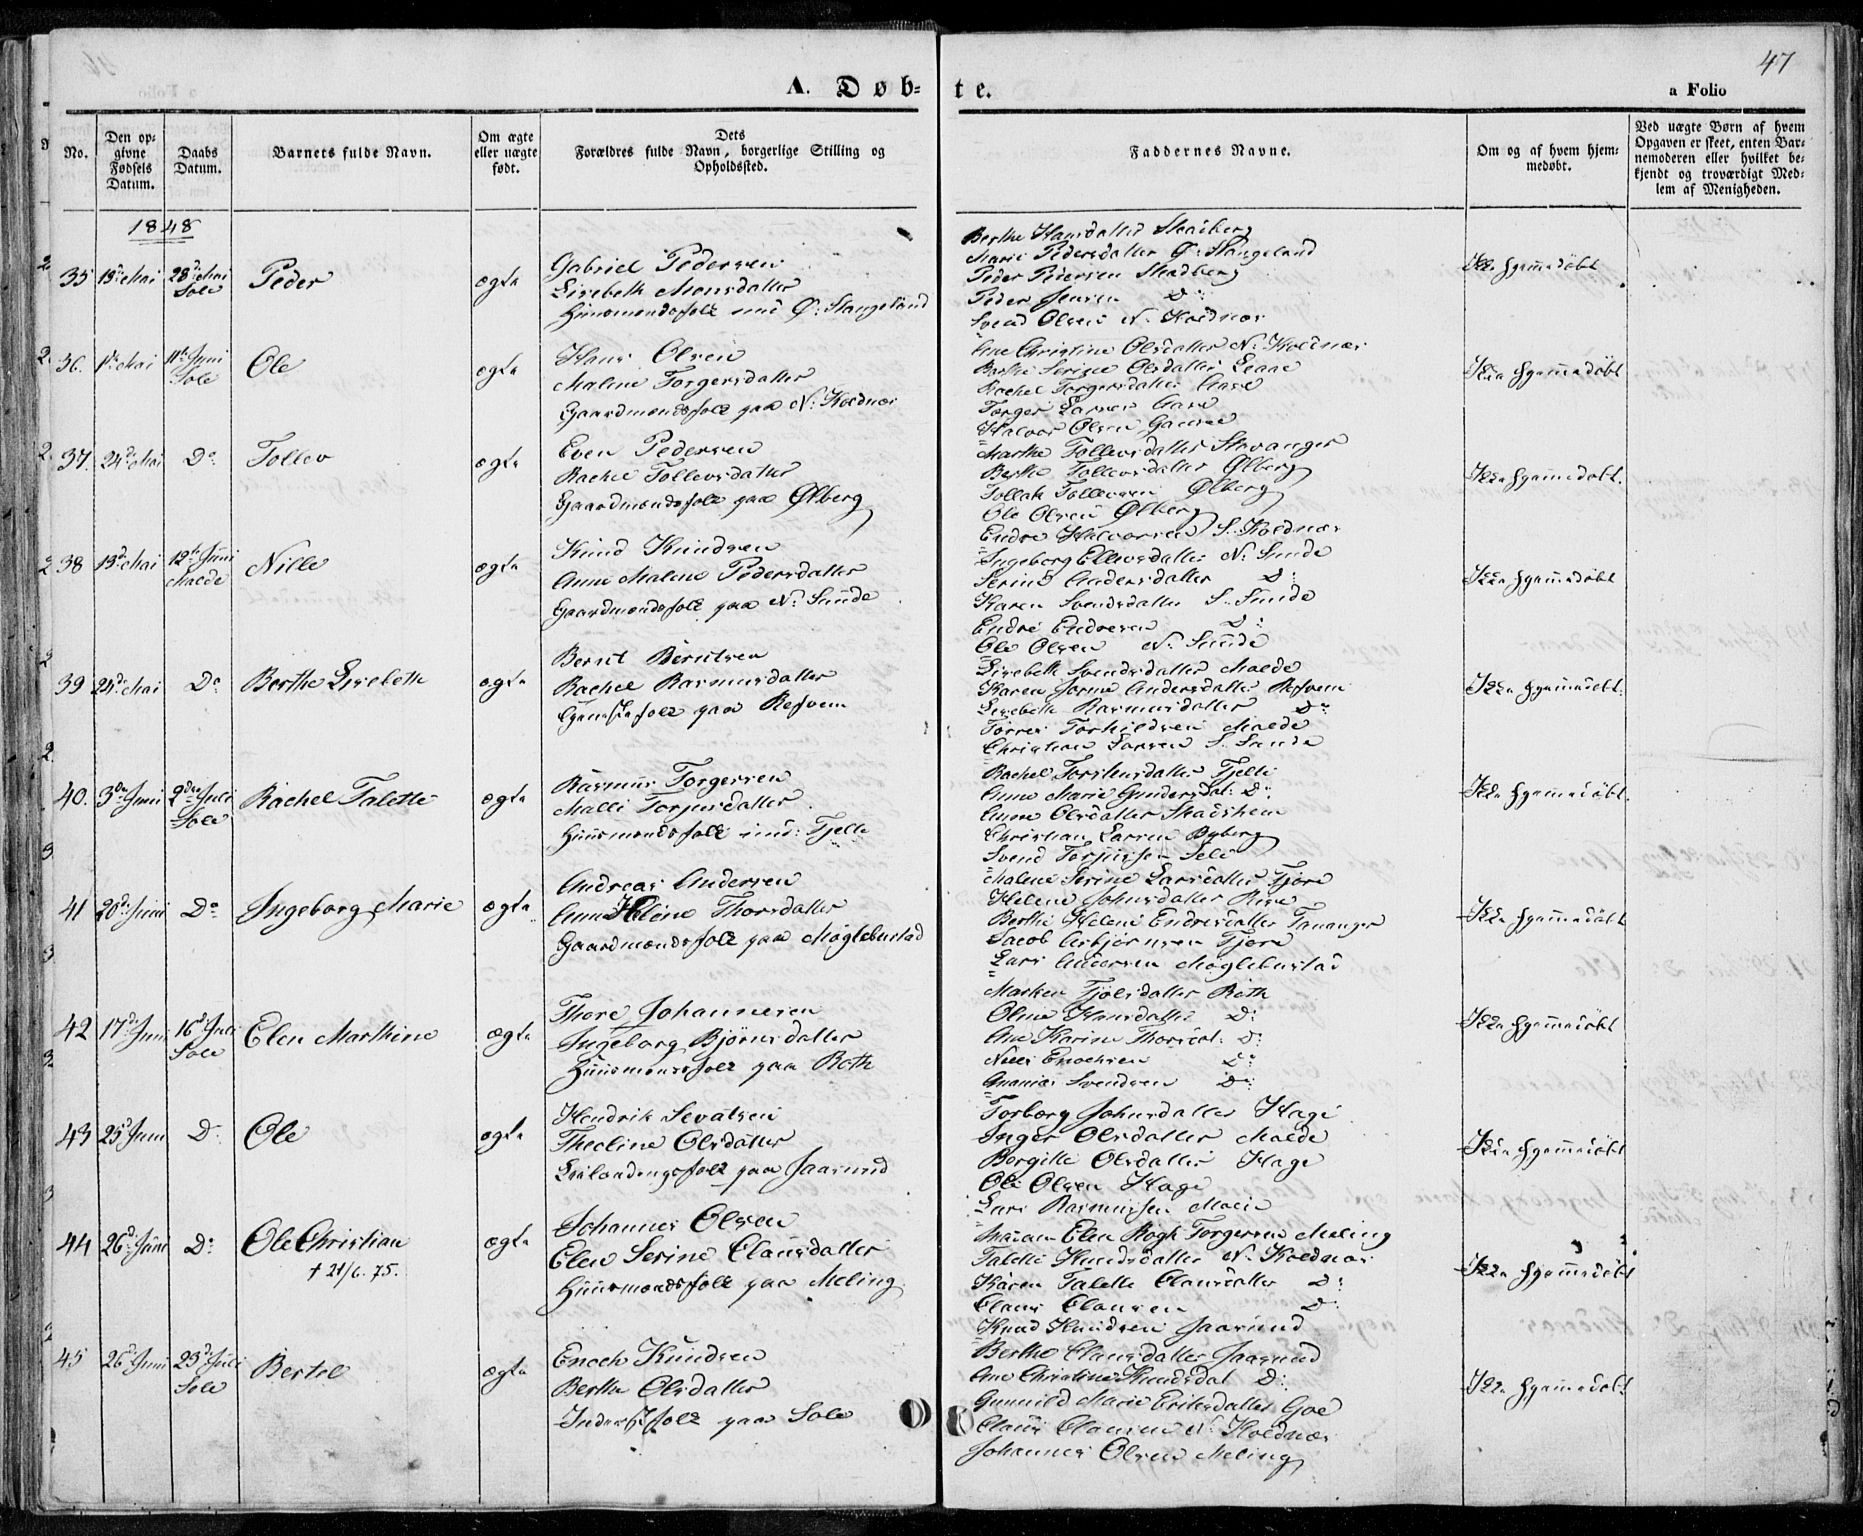 47
A. Døb-
te.
a Folio
No.
Den op-
givne
Fødsels
Datum.
Daabs
Datum.
Barnets fulde Navn.
Om ægte
eller uægte
født.
Dets
Forældres fulde Navn, borgerlige Stilling og
Opholdssted.
Faddernes Navne.
Om og af hvem hjem-
medøbt.
Ved uægte Børn af hvem
Opgaven er skeet, enten Bar-
nemoderen eller hvilket be-
kjendt og troværdigt Med-
lem af Menigheden.
1848
35 Mai 28de Mai
Sole
Peder
ægte
Gabriel Pedersen
Lisebeth Monsdatter
Huusmandsfolk Ø: Stangeland
Berthe Hansdatter Skadberg
Marie Pedersdatter Ø: Stangeland
Peder Pedersen Skadberg
Peder Jensen Do
Svend Olsen N. Koldnæs
Ikke hjemmedøbt
36. Mai 11te Juni
Sole
Ole
ægte
Hans Olsen
Malene Torgersdatter
Gaardmandsfolk paa N. Koldnæs
Ane Christine Olsdatter N. Koldnæs
Berthe Serine Olsdatter
Rachel Torgersdatter
Torger Larsen
Halvor Olsen
Ikke hjemmedøbt
37. 24de Mai Do
Tollev
ægte
Even Pedersen
Rachel Tollevsdatter
Gaardmandsfolk paa Ølberg
Marthe Tollevsdatter Stavanger
Berthe Tollevsdatter Ølberg
Tollak Tollevsen Ølberg
Ole Olsen Ølberg
Endre Halvorsen S. Koldnæs
Ikke hjemmedøbt.
38 13de Mai 12te Juni
Malde
Nille
ægte
Knud Knudsen
Anne Malene Pedersdatter
Gaardmandsfolk paa N. Sunde
Ingeborg Ellevsdatter N. Sunde
Serine Andersdatter Do
Karen Svendsdatter S. Sunde
Endre Endresen Do
Ole Olsen N. Sunde
Ikke hjemmedøbt
39 24de Mai Do
Berthe Lisebeth
ægte
Bernt Berntsen
Rachel Rasmusdatter
paa Refsem
Lisebeth Svendsdatter Malde
Karen Andersdatter
Lisebeth Rasmusdatter Do
Torres Torkildsen Malde
Christian Larsen S. Sunde
Ikke hjemmedøbt.
40. 3die Juni 2den Juli
Sole
Rachel Talette
ægte
Rasmus Torgersen
Malli Torjusdatter
Huusmandsfolk ind: Tjelle
Rachel Torstensdatter Tjelle
Anne Marie Gundersdat. Do
Anne Olsdatter
Christian Larsen Byberg
Svend Torjussen Sole
Ikke hjemmedøbt.
41 20de Juni Do
Ingeborg Marie
ægte
Andreas Andersen
Anne Helene Thorsdatter
Gaardmandsfolk paa Møglebustad
Malene Serine Larsdatter Tjøre
Helene Johnsdatter Risa
Berthe Helene Endresdatter Tananger
Jacob Asbjørnsen Tjøre
Lars Andersen Møglebustad
Ikke hjemmedøbt
42 17de Juni 16de Juli
Sole
Elen Marthine
ægte
Thore Johannesen
Ingeborg Bjørnsdatter
Huusmandsfolk paa Roth
Marken Tjølsdatter Roth
Oline Hansdatter Do
Ane Karine Thorsdat. Do
Niels Enochsen Do
Ananias Svendsen Do
Ikke hjemmedøbt
43 25de Juni Do
Ole
ægte
Hendrik Sevatsen
Thecline Olsdatter
folk paa Jaasund
Torborg Johnsdatter Hage
Inger Olsdatter Malde
Borgille Olsdatter Hage
Ole Olsen Hage
Lars Rasmussen
Ikke hjemmedøbt
44 26de Juni Do
Ole Christian
† 21/6. 75.
ægte
Johannes Olsen
Elen Serine Clausdatter
Huusmandsfolk paa Meling
Elen Rogh Torgersen Meling
Talette Knudsdatter N. Koldnæs
Karen Talette Clausdatter Do
Claus Clausen Do
Knud Knudsen Jaasund
Ikke hjemmedøbt
45 26de Juni 23de Juli
Sole
Bertel
ægte
Enoch Knudsen
Berthe Olsdatter
folk paa Sole
Berthe Clausdatter Jaasund
Ane Christine Knudsdat Do
Gunnild Marie Eriksdatter Goe
Claus Clausen N. Koldnæs
Johannes Olsen Meling
Ikke hjemmedøbt